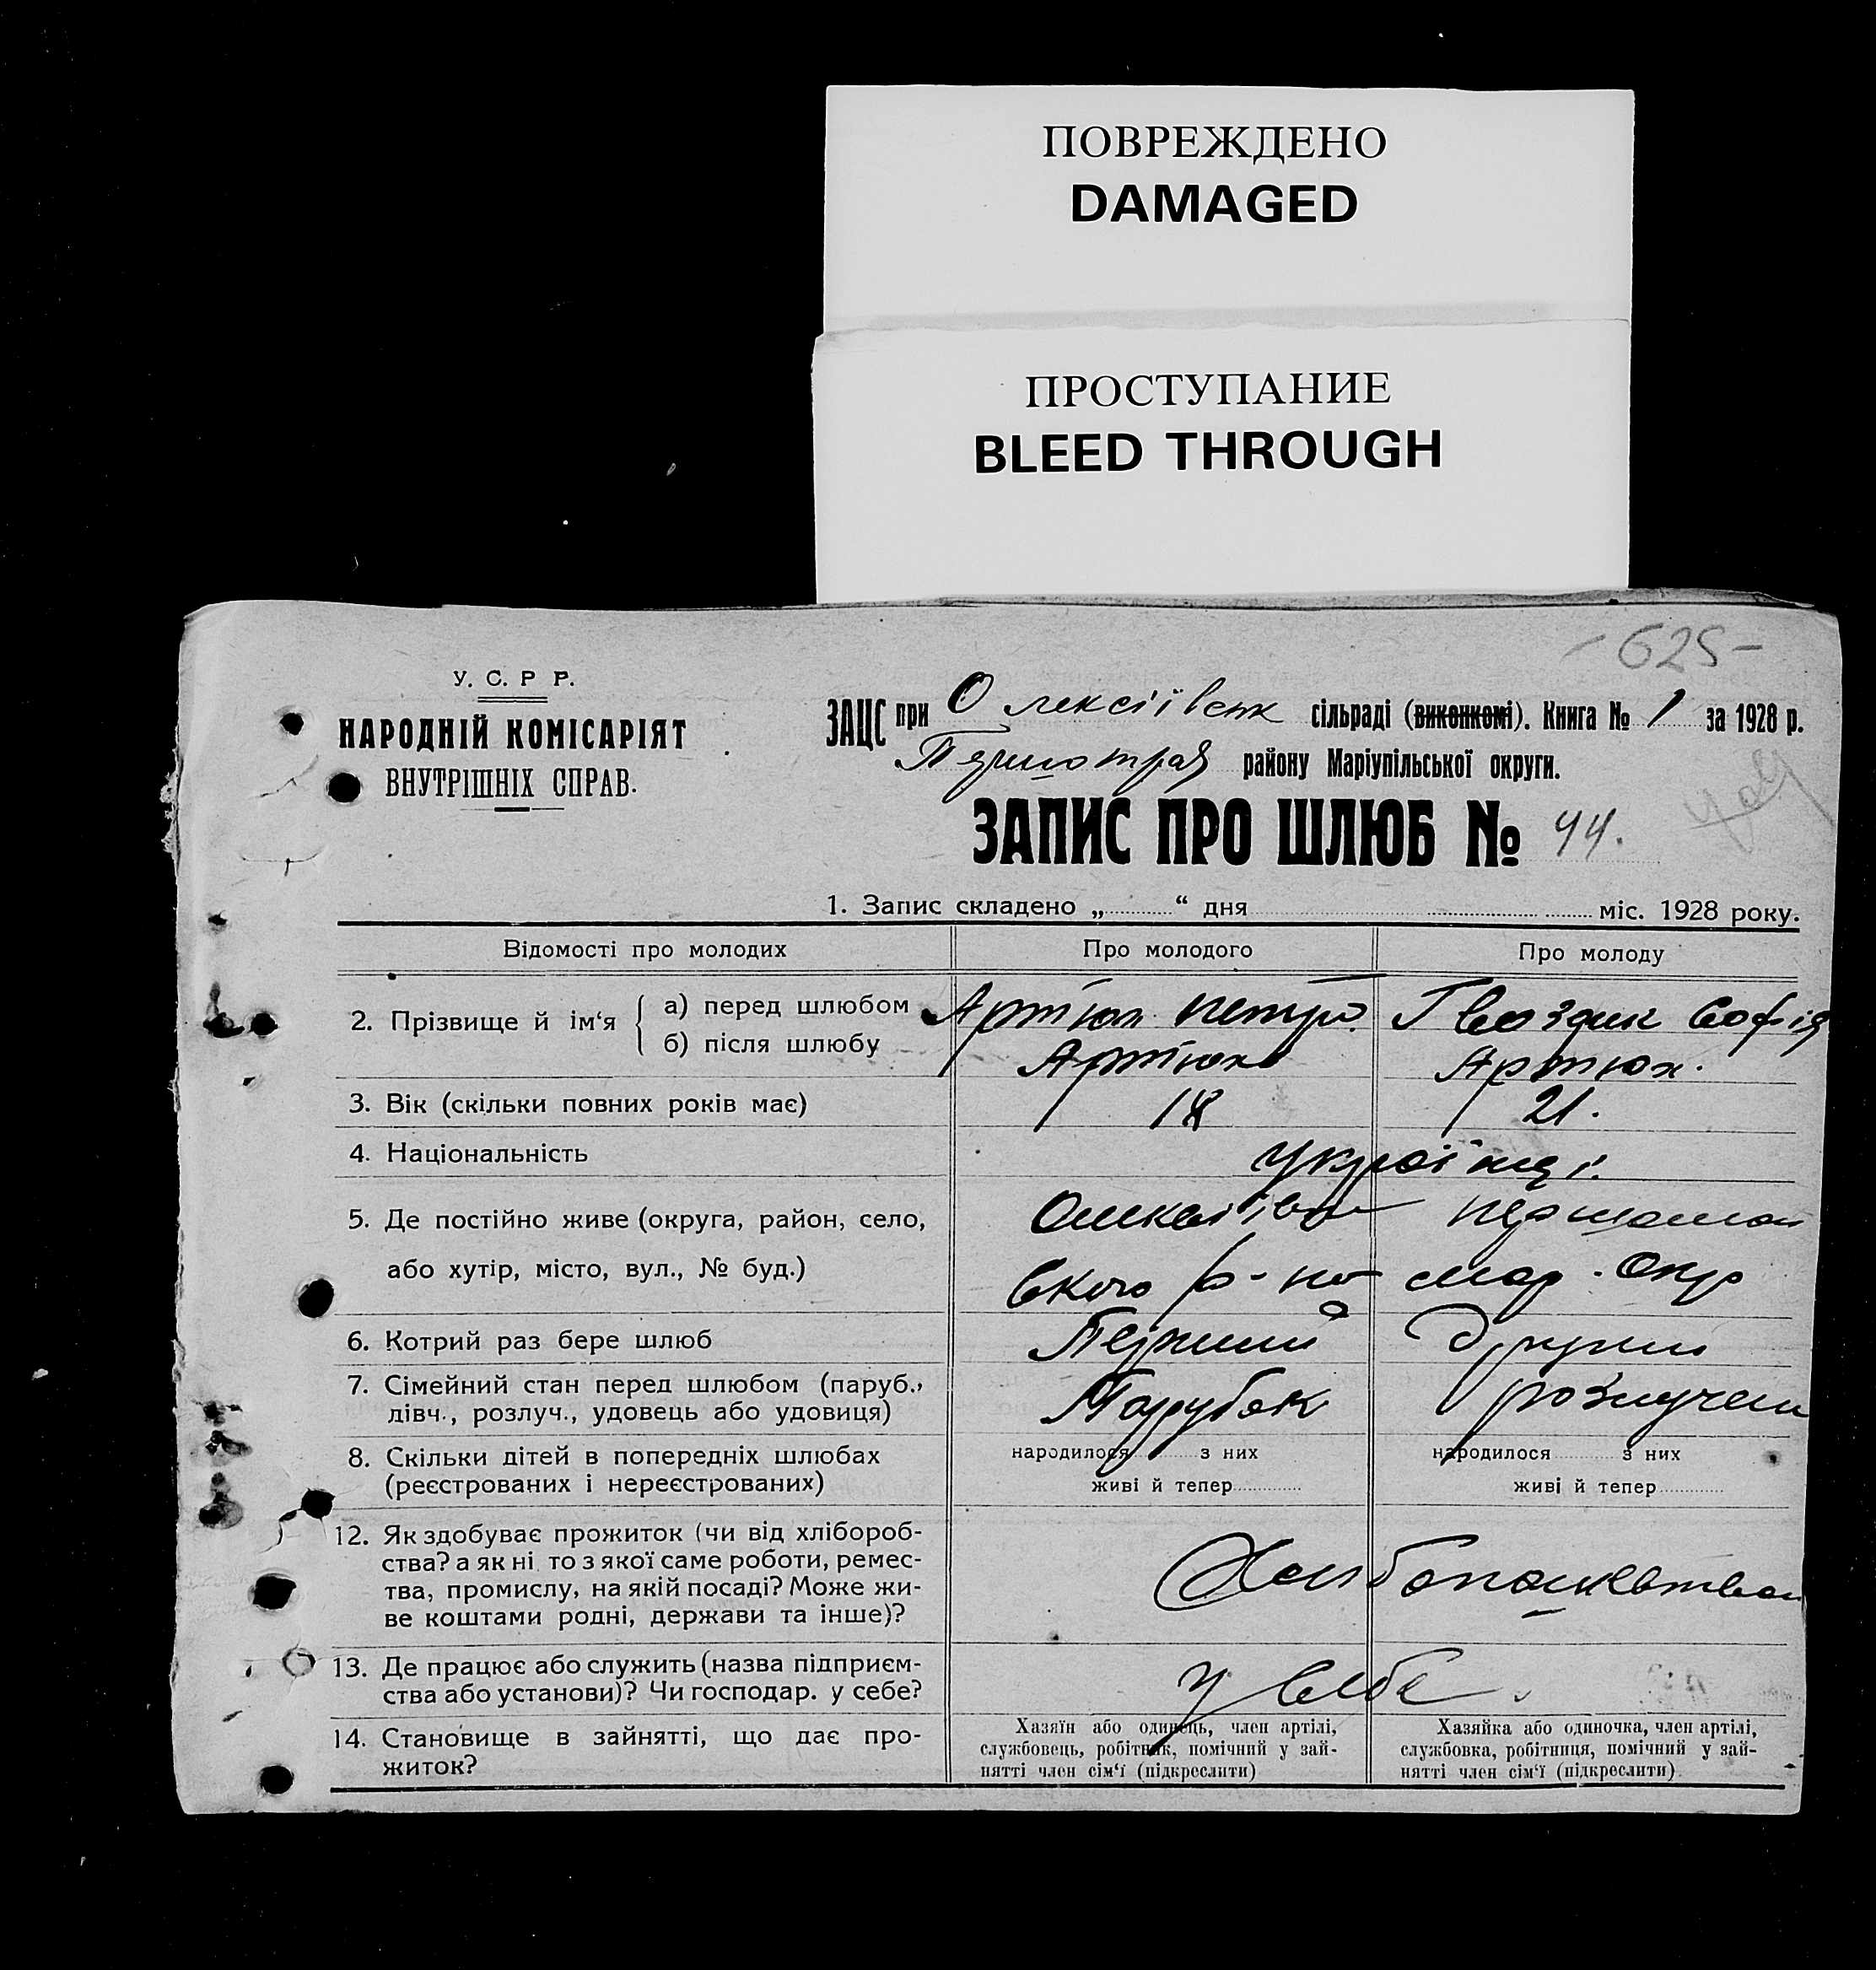 ПОВРЕЖДЕНО
DAMAGED
ПРОСТУПАНИЕ
BLEED THROUGH
- 625 -
У. С. Р Р.
НАРОДНІЙ КОМІСАРІЯТ
ВНУТРІШНІХ СПРАВ.
ЗАЦС при Олексіївськ сільраді (виконкомі). Книга № 1 за 1928 р.
Першотрав району Маріупільської округи.
ЗАПИС ПРО ШЛЮБ № 44.
1. Запис складено „ “ дня міс. 1928 року.
Відомості про молодих Про молодого Про молоду
2. Прізвище й ім‘я { а) перед шлюбом Артюх Петро. Гвоздик Софія
б) після шлюбу Артюх Артюх.
3. Вік (скільки повних років має) 18 21.
4. Національність українці.
5. Де постійно живе (округа, район, село,
або хутір, місто, вул., № буд.) ського р-на мар. Окр
6. Котрий раз бере шлюб Перший другий
7. Сімейний стан перед шлюбом (паруб.,
дівч., розлуч., удовець або удовиця) Парубок розлучен
8. Скільки дітей в попередніх шлюбах народилося з них народилося з них
(реєстрованих і нереєстрованих) живі й тепер живі й тепер
12. Як здобуває прожиток (чи від хлібороб-
ства? а як ні то з якої саме роботи, ремес-
тва, промислу, на якій посаді? Може жи-
ве коштами родні, держави та інше)?
13. Де працює або служить (назва підприєм-
ства або установи)? Чи господар. у себе? у себе.
14. Становище в зайнятті, що дає про-
житок?
Хазяїн або одинець, член артілі,
службовець, робітник, помічний у зай-
нятті член сім‘ї (підкреслити)
Хазяйка або одиночка, член артілі,
службовка, робітниця, помічний у зай-
нятті член сім‘ї (підкреслити)